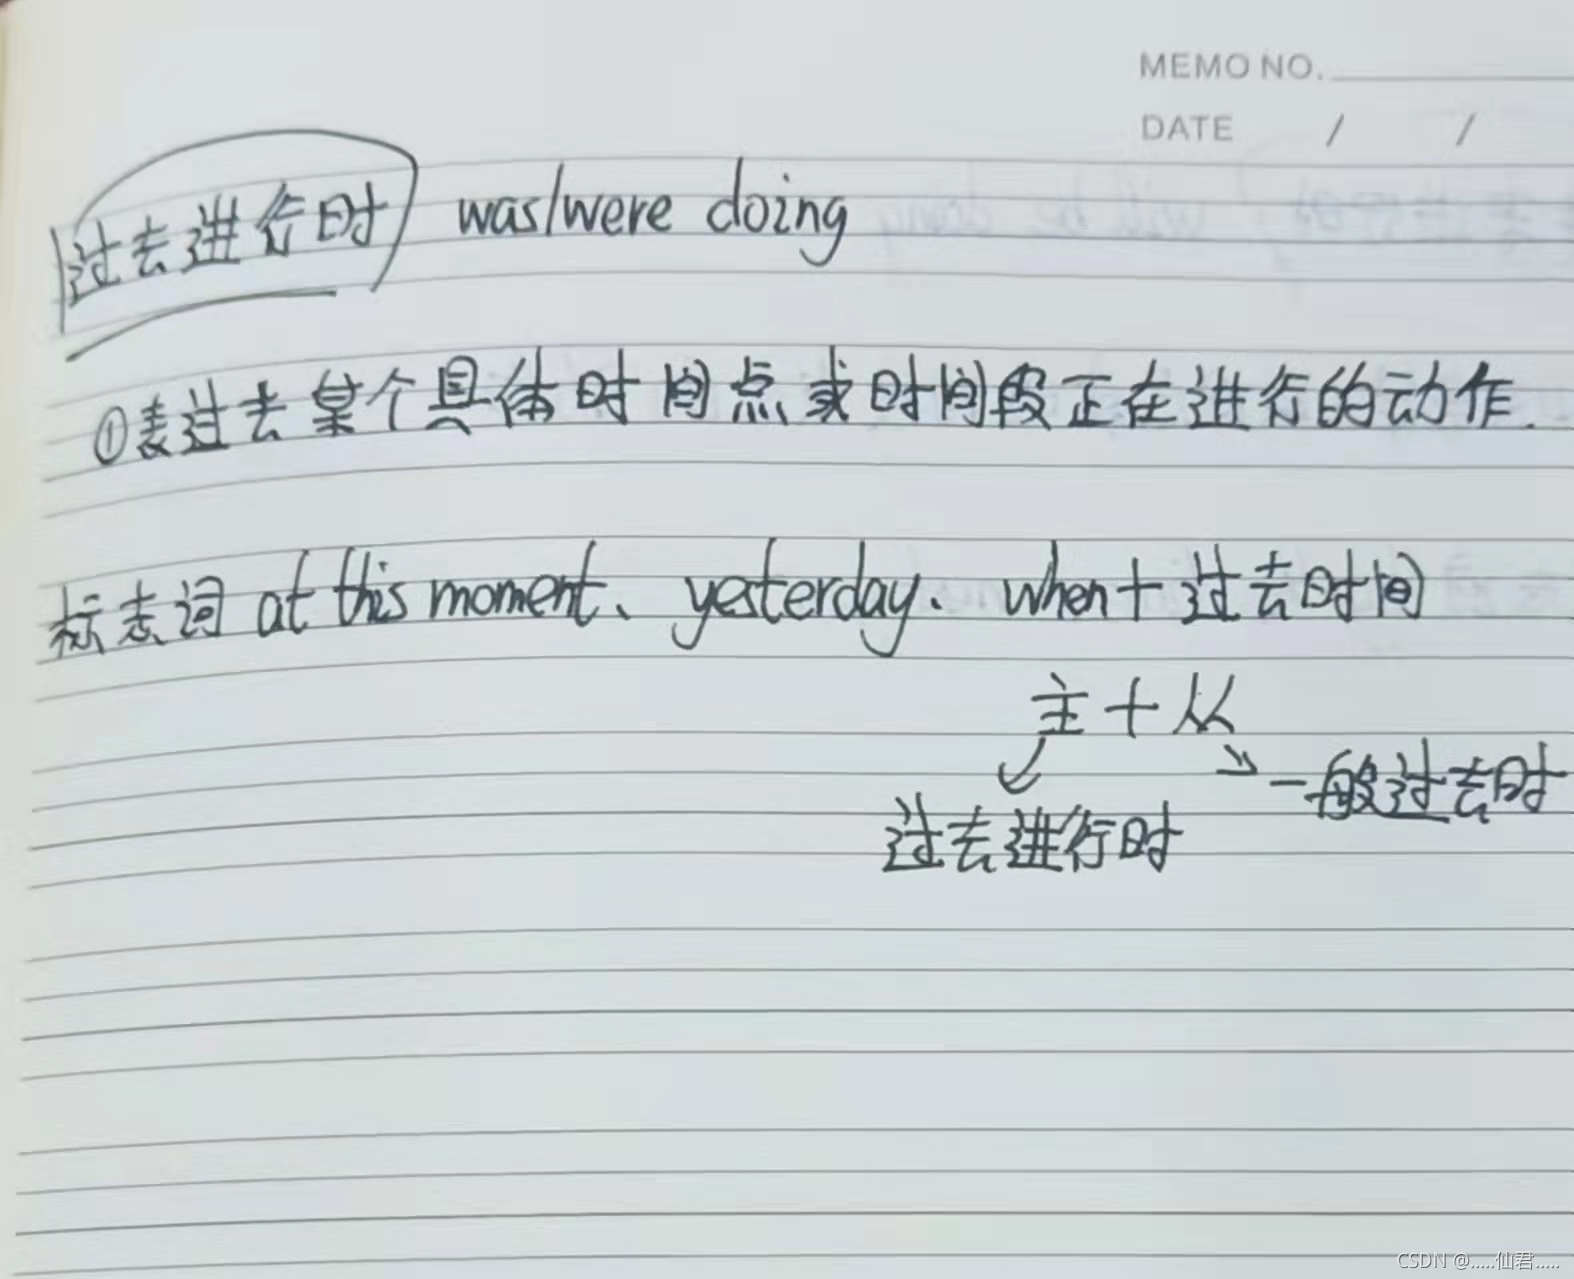 MEMO NO.
DATE / /
过去进行时 was/were doing
①表过去某个具体时间点或时间段正在进行的动作.
标志词 at this moment、yesterday. when+过去时间
主+从
一般过去时
过去进行时
CSDN @.....仙君.....